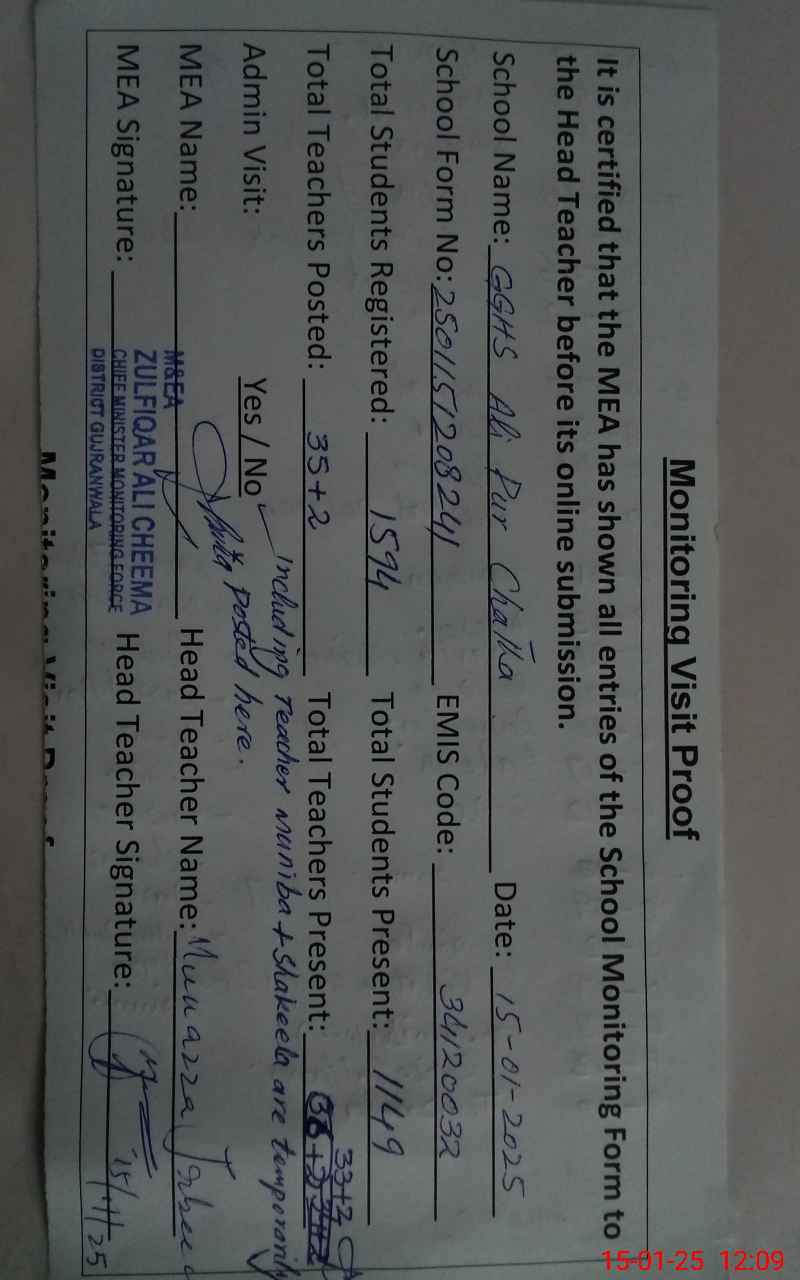 Monitoring Visit Proof
It is certified that the MEA has shown all entries of the School Monitoring Form to
the Head Teacher before its online submission.
School Name: GGHS Ali Pur Chatha Date: 15-01-2025
School Form No: 2501151208241 EMIS Code: 34120032
Total Students Registered: 1594 Total Students Present: 1149
Total Teachers Posted: 35+2 Total Teachers Present: 33+2
including Teacher Muniba + Shakeela are temporarily
Admin Visit: Yes / No posted here.
MEA Name: Head Teacher Name: Munazza
M&EA
ZULFIQAR ALI CHEEMA
CHIEF MINISTER MONITORING FORCE
DISTRICT GUJRANWALA
MEA Signature: Head Teacher Signature: 15/1/25
Monitoring Visit Proof
15-01-25 12:09